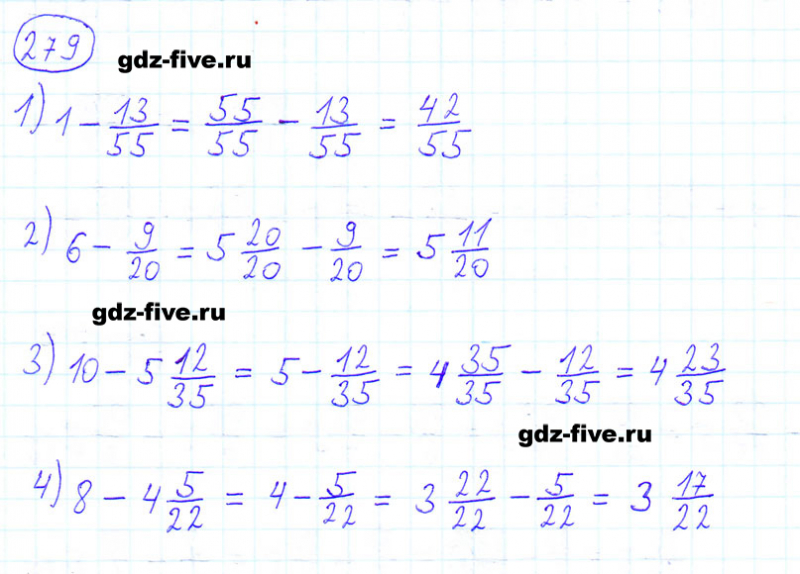 279 gdz-five.ru
1) 1 - 13/55 = 55/55 - 13/55 = 42/55
2) 6 - 9/20 = 5 20/20 - 9/20 = 5 11/20
gdz-five.ru
3) 10 - 5 12/35 = 5 - 12/35 = 4 35/35 - 12/35 = 4 23/35
gdz-five.ru
4) 8 - 4 5/22 = 4 - 5/22 = 3 22/22 - 5/22 = 3 17/22